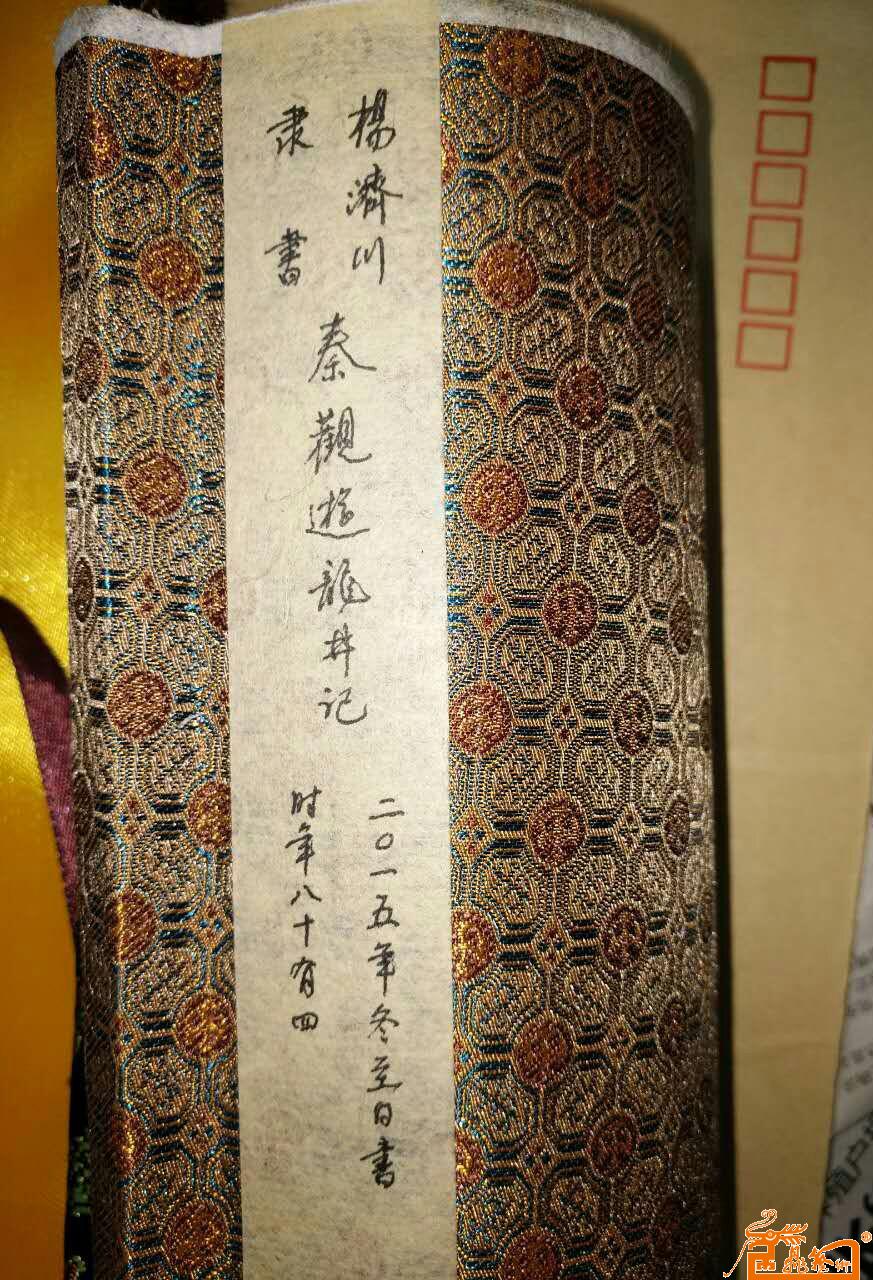 楊濟川
隶書
秦觀遊龍井记
二〇一五年冬至日书
时年八十有四